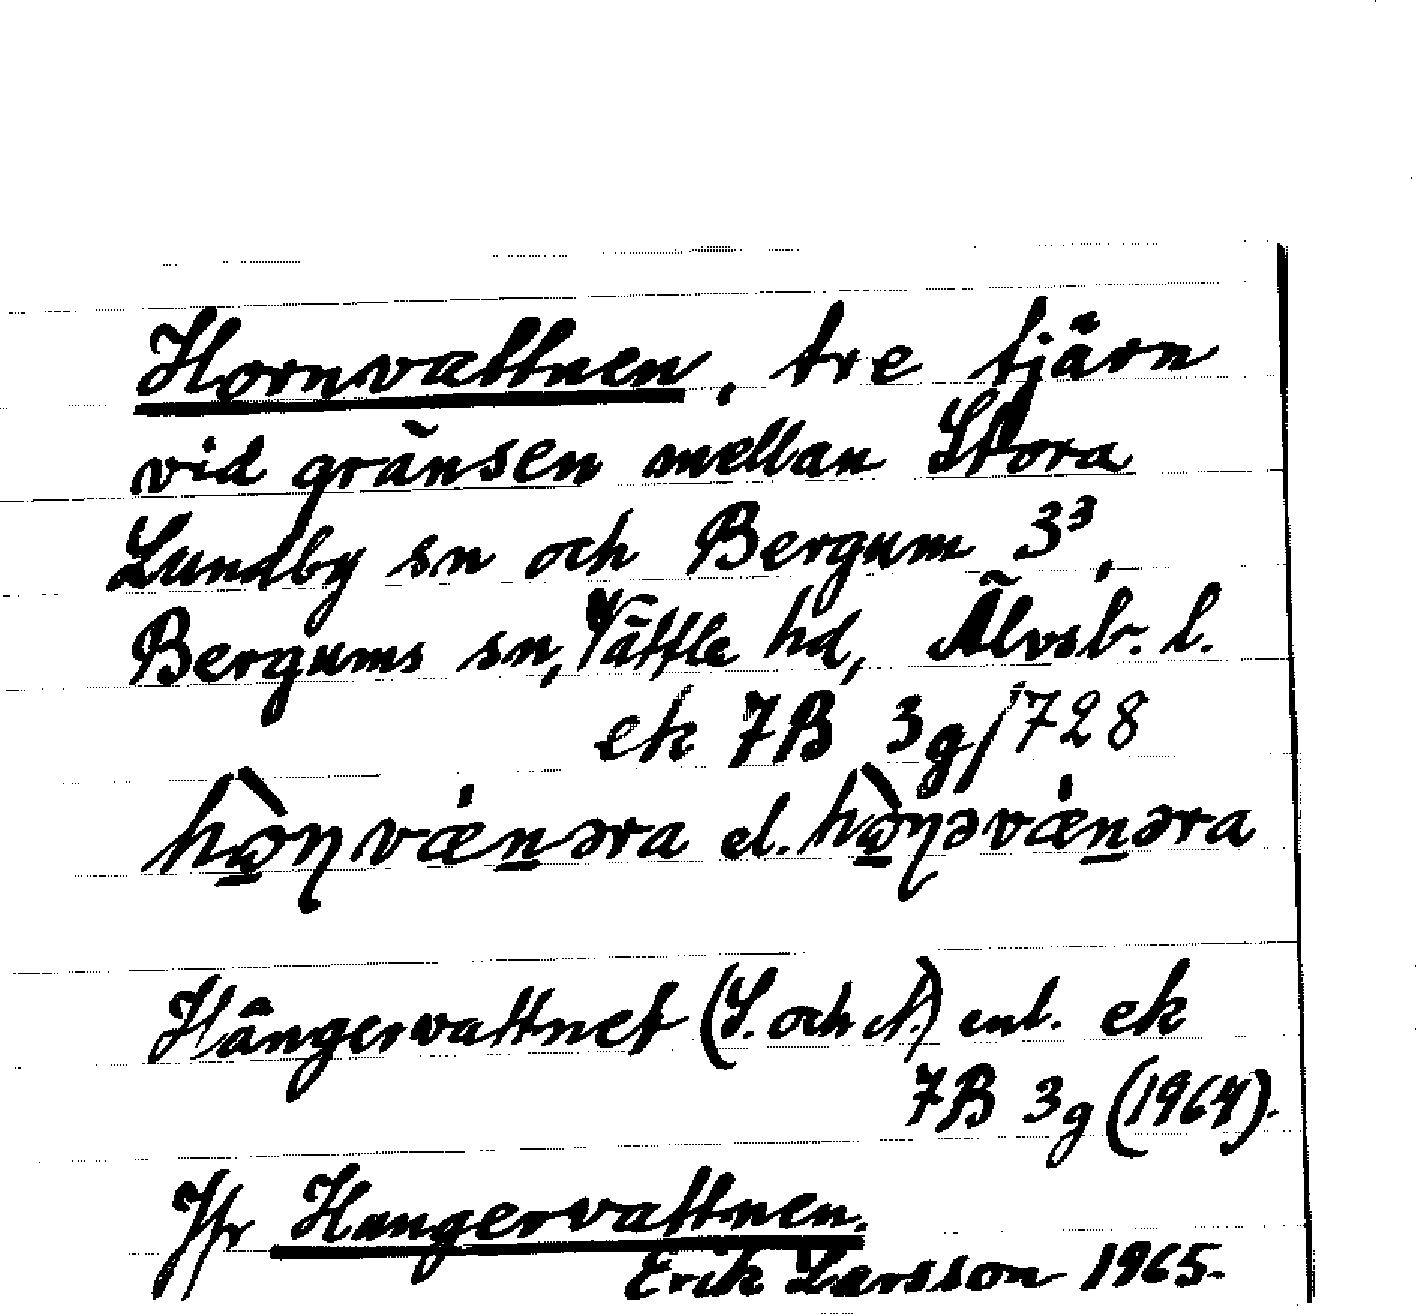 Hornvattnen, tre tjärn
vid gränsen mellan Stora
Lundby sn och Bergum 3³,
Bergums sn, Vättle hd, Älvsb. l.
ek 7B 3g/728
el.
Hångervattnet (S. och N.) enl. ek
7B 3g (1964).
Jfr Hangervattnen.
Erik Larsson 1965.